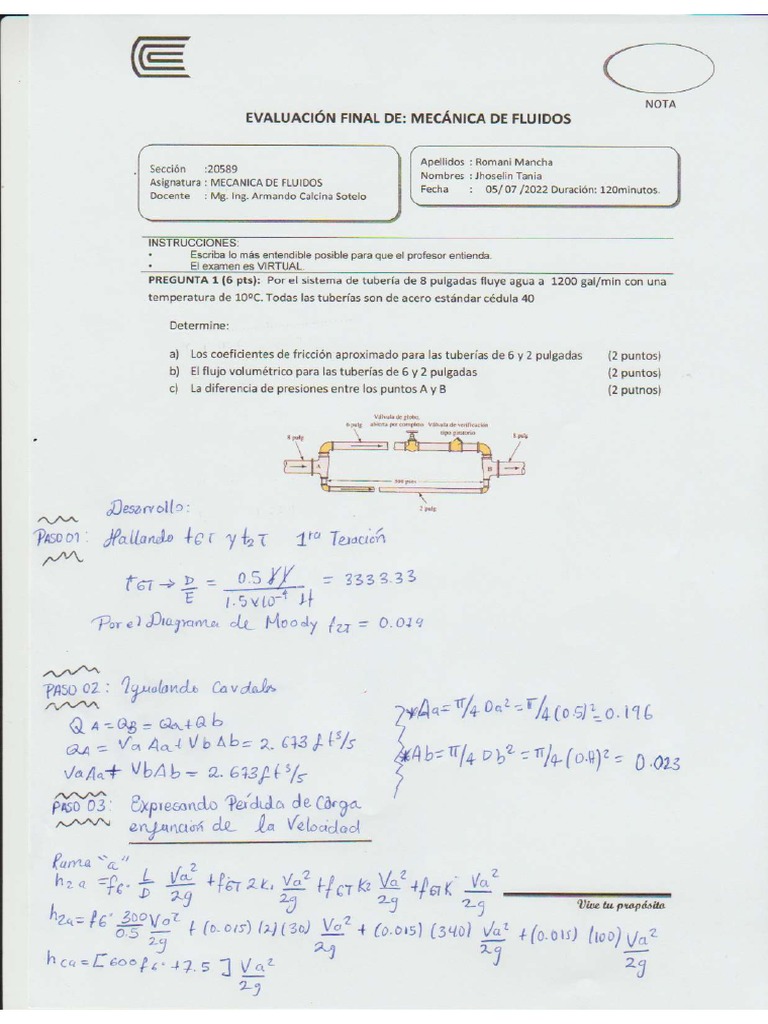 NOTA
EVALUACIÓN FINAL DE: MECÁNICA DE FLUIDOS
Sección :20589
Asignatura : MECANICA DE FLUIDOS
Docente : Mg. Ing. Armando Calcina Sotelo
Apellidos : Romani Mancha
Nombres : Jhoselin Tania
Fecha : 05/ 07 /2022 Duración: 120minutos.
INSTRUCCIONES:
• Escriba lo más entendible posible para que el profesor entienda.
• El examen es VIRTUAL.
PREGUNTA 1 (6 pts): Por el sistema de tubería de 8 pulgadas fluye agua a 1200 gal/min con una
temperatura de 10ºC. Todas las tuberías son de acero estándar cédula 40
Determine:
a) Los coeficientes de fricción aproximado para las tuberías de 6 y 2 pulgadas (2 puntos)
b) El flujo volumétrico para las tuberías de 6 y 2 pulgadas (2 puntos)
c) La diferencia de presiones entre los puntos A y B (2 putnos)
Válvula de globo,
6 pulg abierta por completo Válvula de verificación
tipo giratorio
8 pulg
A
B
2 pulg
Desarrollo:
PASO 01: Hallando f6T y f2T 1ra Teración
f6T → D/E = 0.5 ft / 1.5x10^-4 ft = 3333.33
Por el Diagrama de Moody f2T = 0.019
PASO 02: Igualando Caudales
QA = QB = Qa + Qb
QA = Va Aa + Vb Ab = 2.673 ft³/s
VaAa + VbAb = 2.673 ft³/s
*Aa = π/4 Da² = π/4 (0.5)² = 0.196
*Ab = π/4 Db² = π/4 (0.17)² = 0.023
PASO 03: Expresando Perdida de Carga
enfunción de la Velocidad
Rama "a"
h2a = f6 · L/D Va²/2g + f6T 2K1 Va²/2g + f6T K2 Va²/2g + f6T K Va²/2g
Vive tu propósito
h2a = f6 · 300/0.5 Va²/2g + (0.015)(2)(30) Va²/2g + (0.015)(340) Va²/2g + (0.015)(100) Va²/2g
hca = [600 f6 · + 7.5] Va²/2g